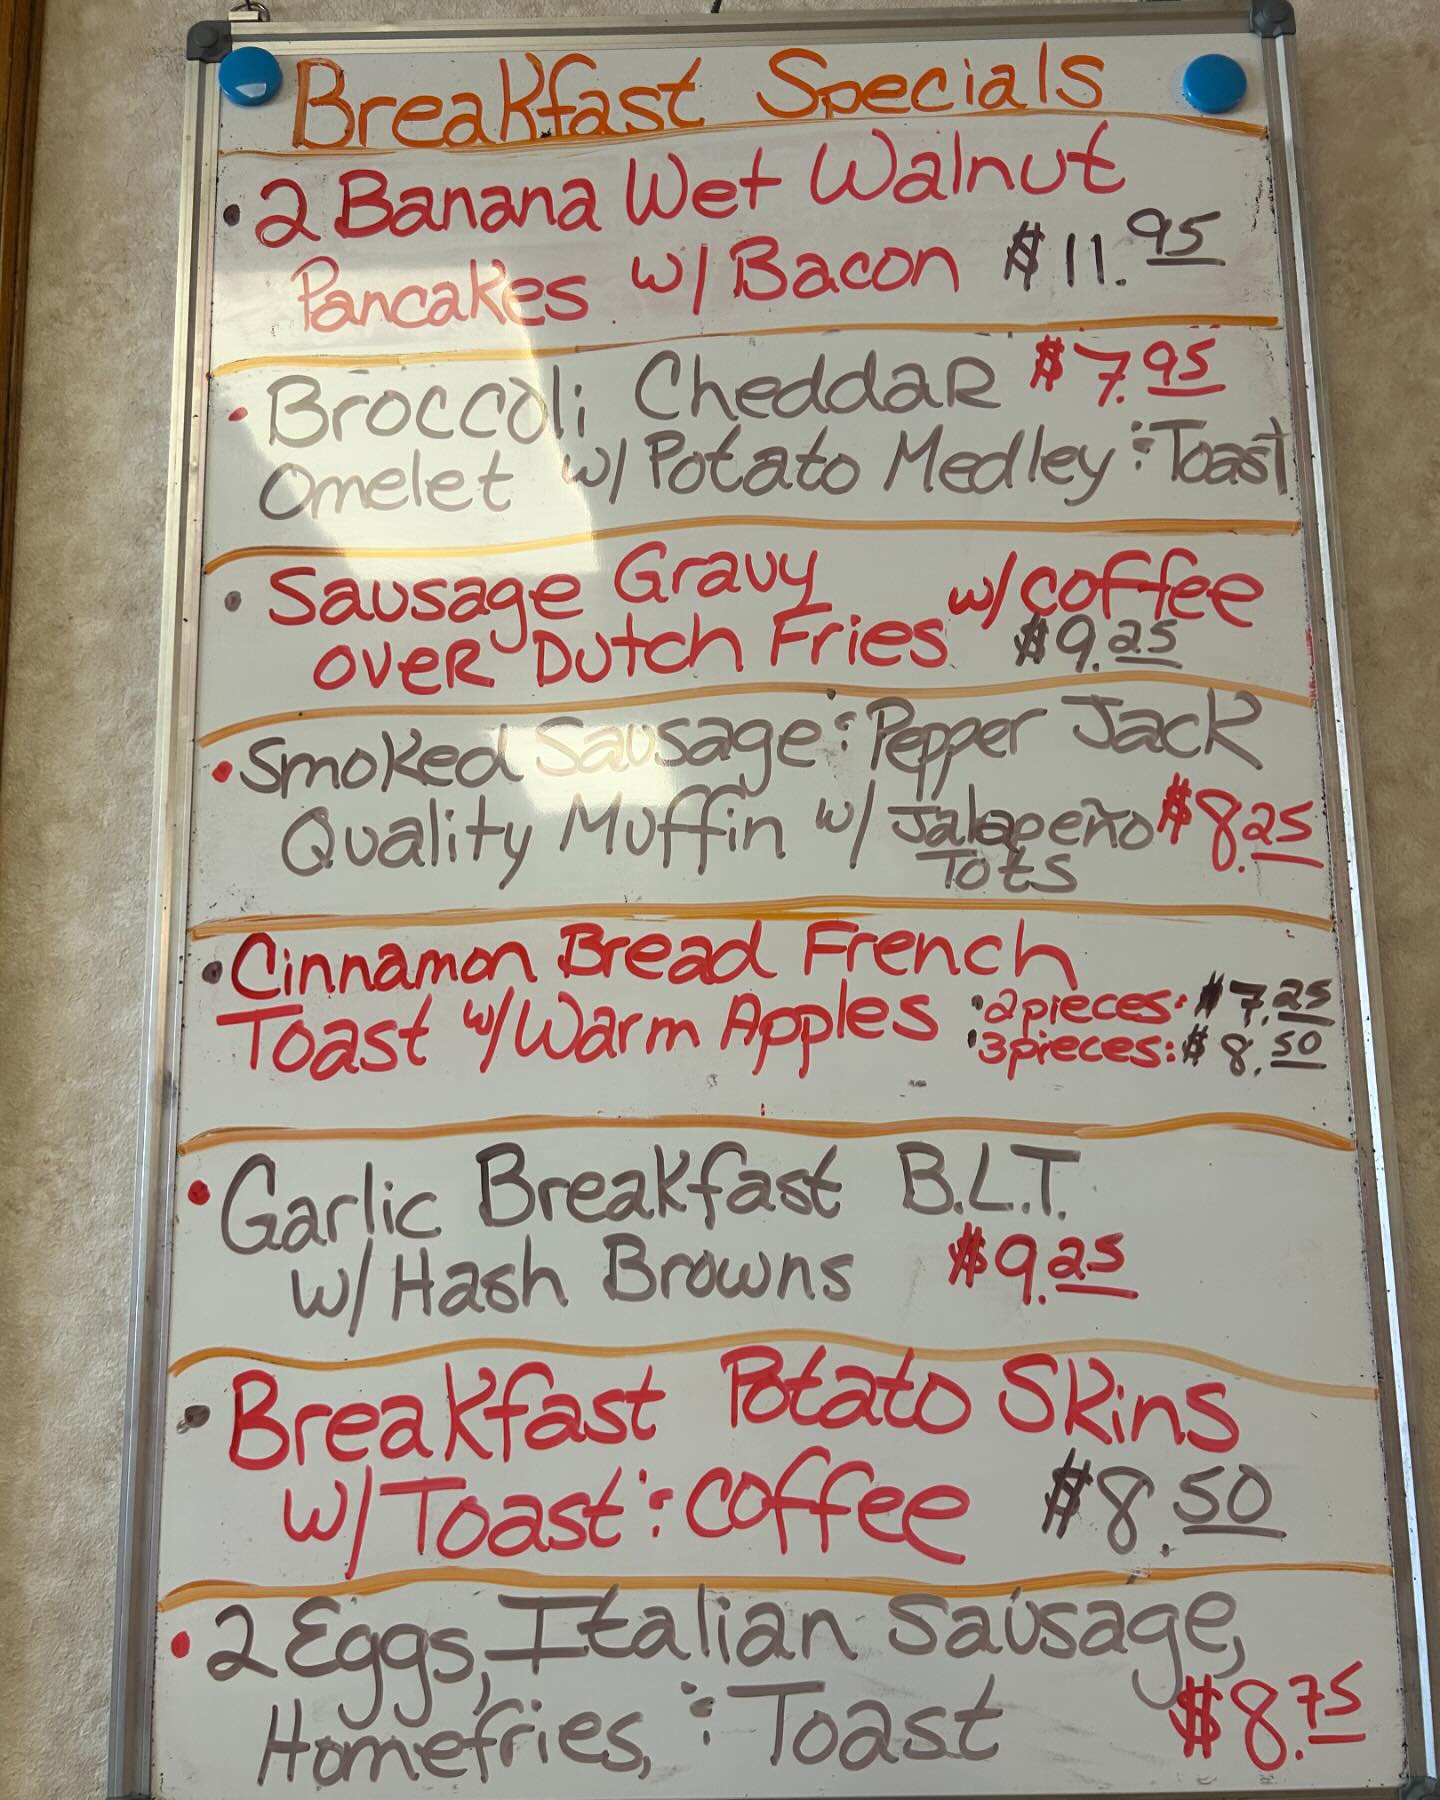 Breakfast Specials
• 2 Banana Wet Walnut
Pancakes w/ Bacon $11.95
• Broccoli Cheddar $7.95
Omelet w/ Potato Medley & Toast
• Sausage Gravy w/ coffee
over Dutch Fries $9.25
• Smoked Sausage & Pepper Jack
Quality Muffin w/ Jalapeño $8.25
Tots
• Cinnamon Bread French
Toast w/ Warm Apples • 2 pieces: $7.25
• 3 pieces: $8.50
• Garlic Breakfast B.L.T.
w/ Hash Browns $9.25
• Breakfast Potato Skins
w/ Toast & coffee $8.50
• 2 Eggs, Italian Sausage,
Homefries, & Toast $8.75